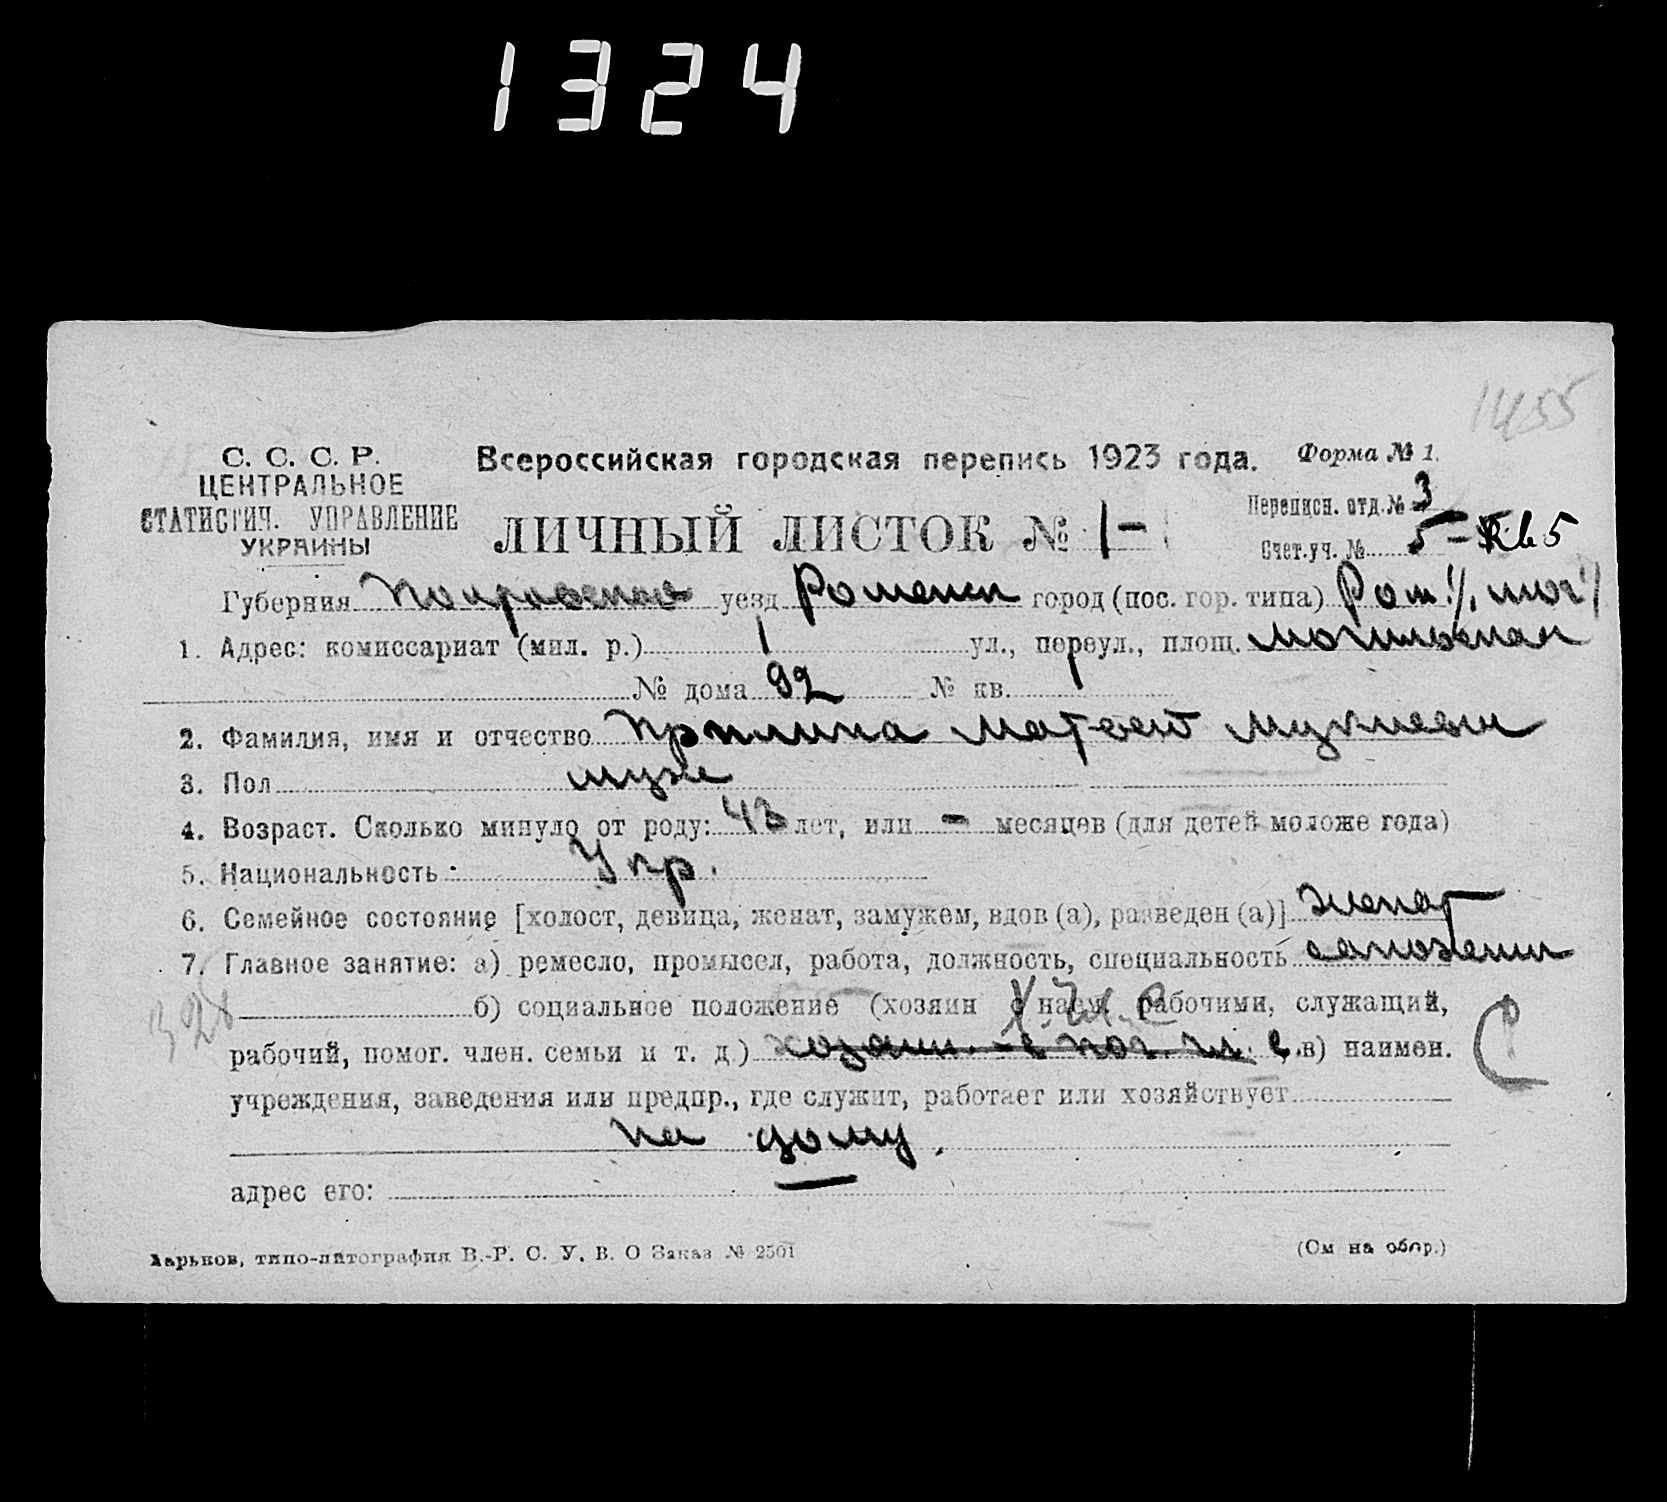 1324
1455
С. С. С. Р.
ЦЕНТРАЛЬНОЕ
СТАТИСТИЧ. УПРАВЛЕНИЕ
УКРАИНЫ
Всероссийская городская перепись 1923 года. Форма № 1.
ЛИЧНЫЙ ЛИСТОК № 1-
Переписн. отд. № 3
Счет. уч. № 5 - Кв 5
Губерния Полтавская уезд Роменск город (пос. гор. типа) Ром.
1. Адрес: комиссариат (мил. р.) 1 ул., переул., площ.
№ дома 92 № кв.
2. Фамилия, имя и отчество Матвей
3. Пол муж
4. Возраст. Сколько минуло от роду: 43 лет, или - месяцев (для детей моложе года)
5. Национальность: Укр.
6. Семейное состояние [холост, девица, женат, замужем, вдов (а), разведен (а)] женат
7. Главное занятие: а) ремесло, промысел, работа, должность, специальность сапожник
328
б) социальное положение (хозяин с наем рабочими, служащий,
рабочий, помог. член. семьи и т. д.) хозяин - с пог. чл. с. в) наимен.
учреждения, заведения или предпр., где служит, работает или хозяйствует
на дому.
адрес его:
Харьков, типо-литография В.-Р. С. У. В. О Заказ № 2501 (См на обор.)